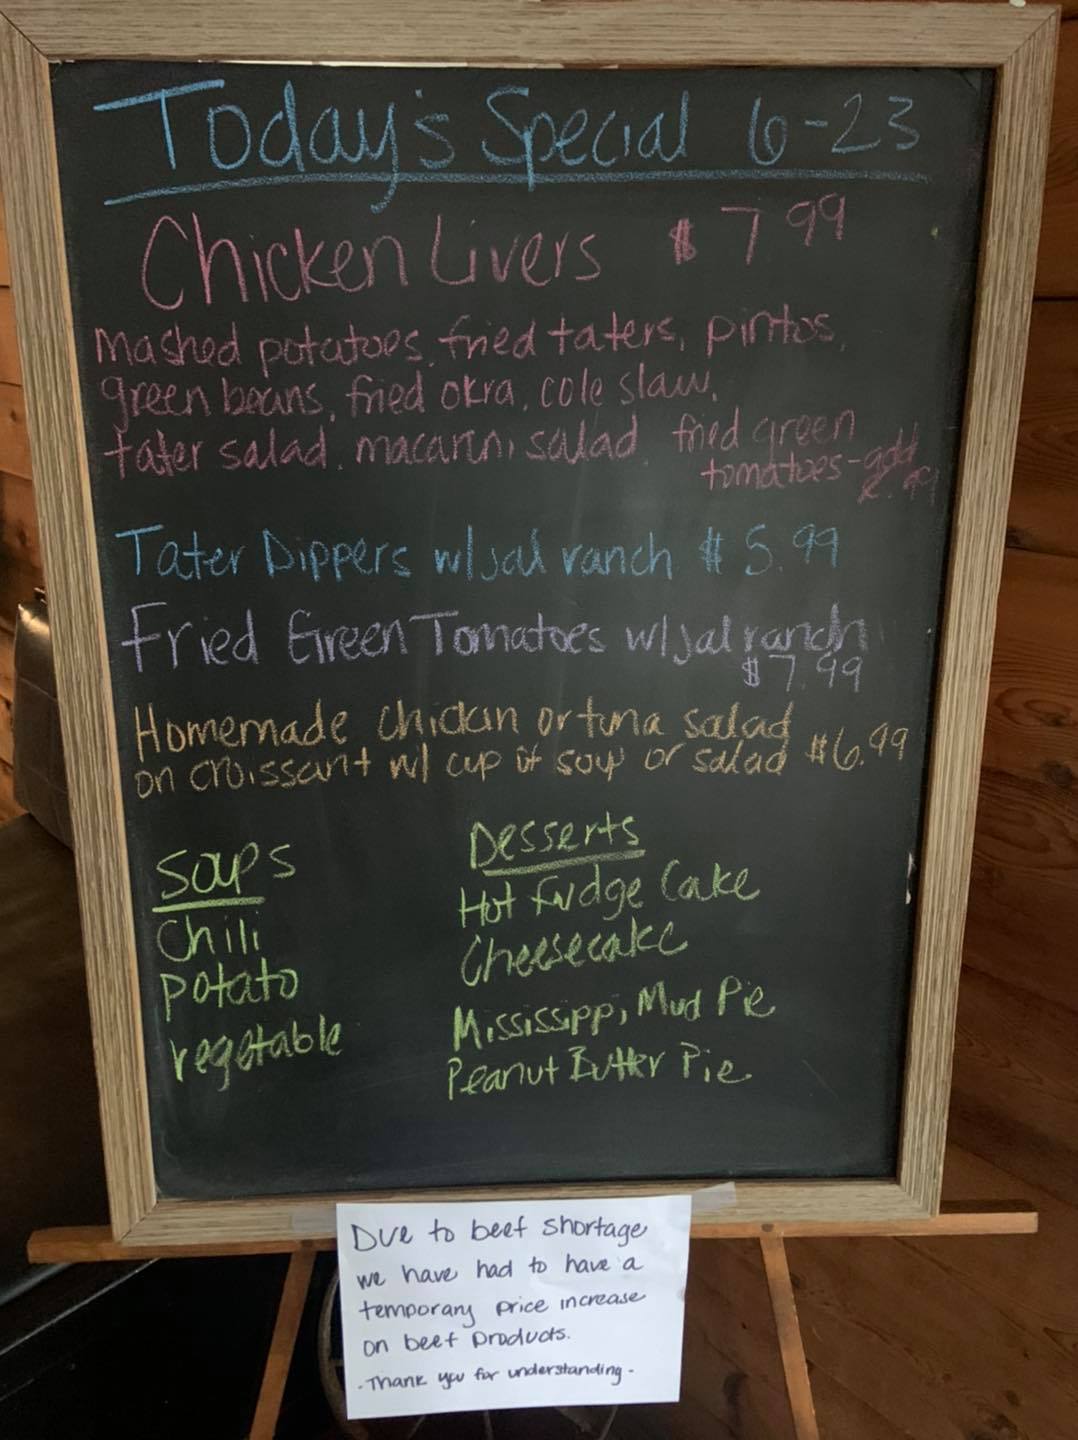 Today's Special 6-23
Chicken Livers $7.99
Mashed potatoes, fried taters, pintos,
green beans, fried okra, cole slaw,
tater salad, macaroni salad, fried green
tomatoes - add
.99
Tater Dippers w/jal ranch $5.99
Fried Green Tomatoes w/jal ranch
$7.99
Homemade chicken or tuna salad
on croissant w/ cup of soup or salad $6.99
Soups
Chili
Potato
Vegetable
Desserts
Hot Fudge Cake
Cheesecake
Mississippi Mud Pie
Peanut Butter Pie
Due to beef shortage
we have had to have a
temporary price increase
on beef products.
- Thank you for understanding -